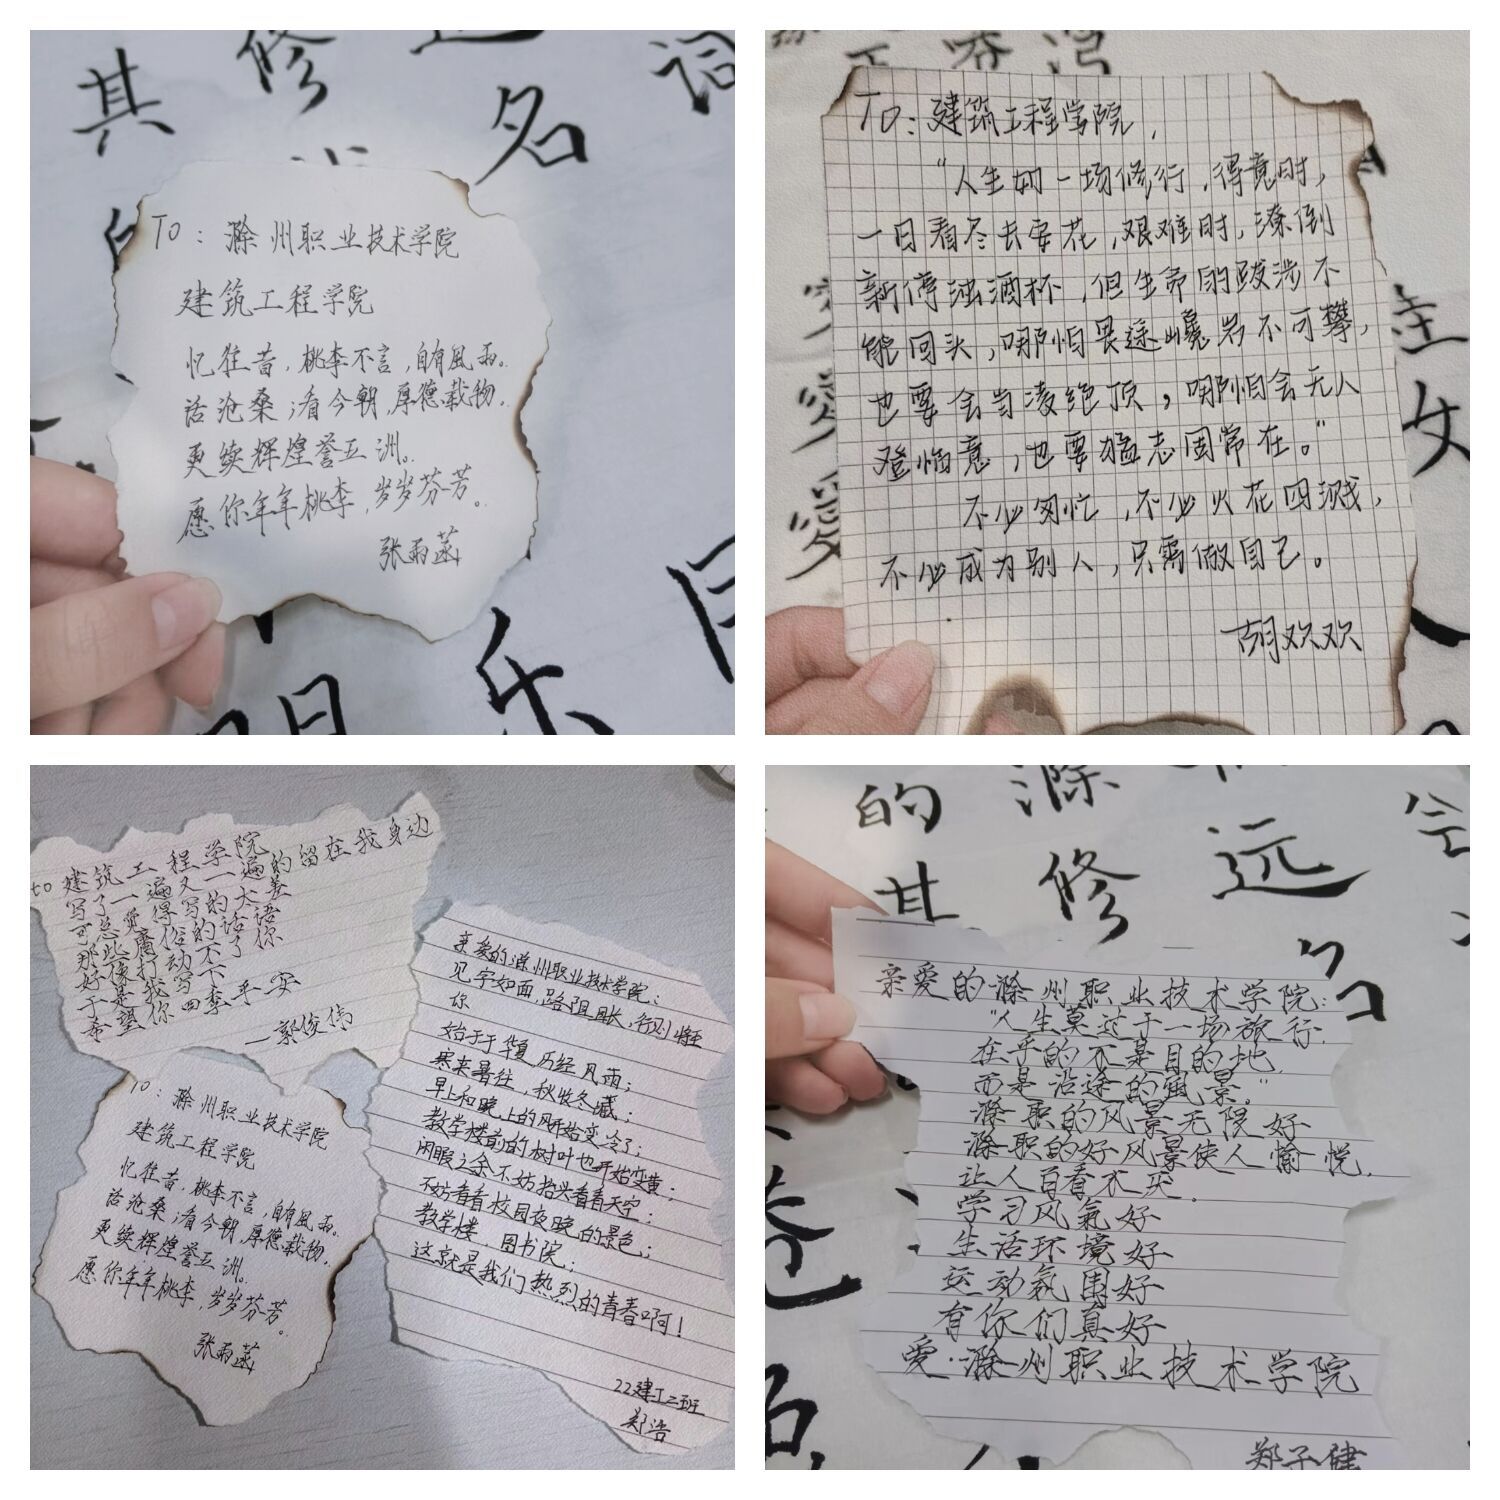 其 修 远 词
名
TO：滁州职业技术学院
建筑工程学院
忆往昔，桃李不言，自有風雨。
话沧桑；看今朝，厚德载物。
更续辉煌誉五洲。
愿你年年桃李，岁岁芬芳。
张雨菡
乐
TO：建筑工程学院，
“人生如一场修行，得意时，
一日看尽长安花，艰难时，潦倒
新停浊酒杯，但生命的跋涉不
能回头，哪怕畏途巉岩不可攀，
也要会当凌绝顶，哪怕会无人
登临意，也要猛志固常在。”
不必匆忙，不必火花四溅，
不必成为别人，只需做自己。
胡欢欢
女
to 建筑工程学院
写了一遍又一遍的留在我身边
可总觉得写的太差
那些腐俗的话语
好像打动不了你
于是我写下
希望你四季平安
—郭俊伟
TO：滁州职业技术学院
建筑工程学院
忆往昔，桃李不言，自有風雨。
话沧桑；看今朝，厚德载物。
更续辉煌誉五洲。
愿你年年桃李，岁岁芬芳。
张雨菡
亲爱的滁州职业技术学院：
见字如面，路阻且长，行则将至
你
始于于华夏 历经风雨；
寒来暑往，秋收冬藏；
早上和晚上的风开始变冷了；
教学楼前的树叶也开始变黄；
闲暇之余不妨抬头看看天空；
不妨看看校园夜晚的景色；
教学楼、图书院；
这就是我们热烈的青春啊！
22建工二班
郑浩
的 滁
其 修 远 兮
亲爱的滁州职业技术学院：
“人生莫过于一场旅行.
在乎的不是目的地.
而是沿途的風景。”
滁职的风景无限好
滁职的好风景使人愉悦.
让人百看不厌.
学习风氣好
生活环境好
运动氛围好
有你们真好
爱·滁州职业技术学院
郑子健